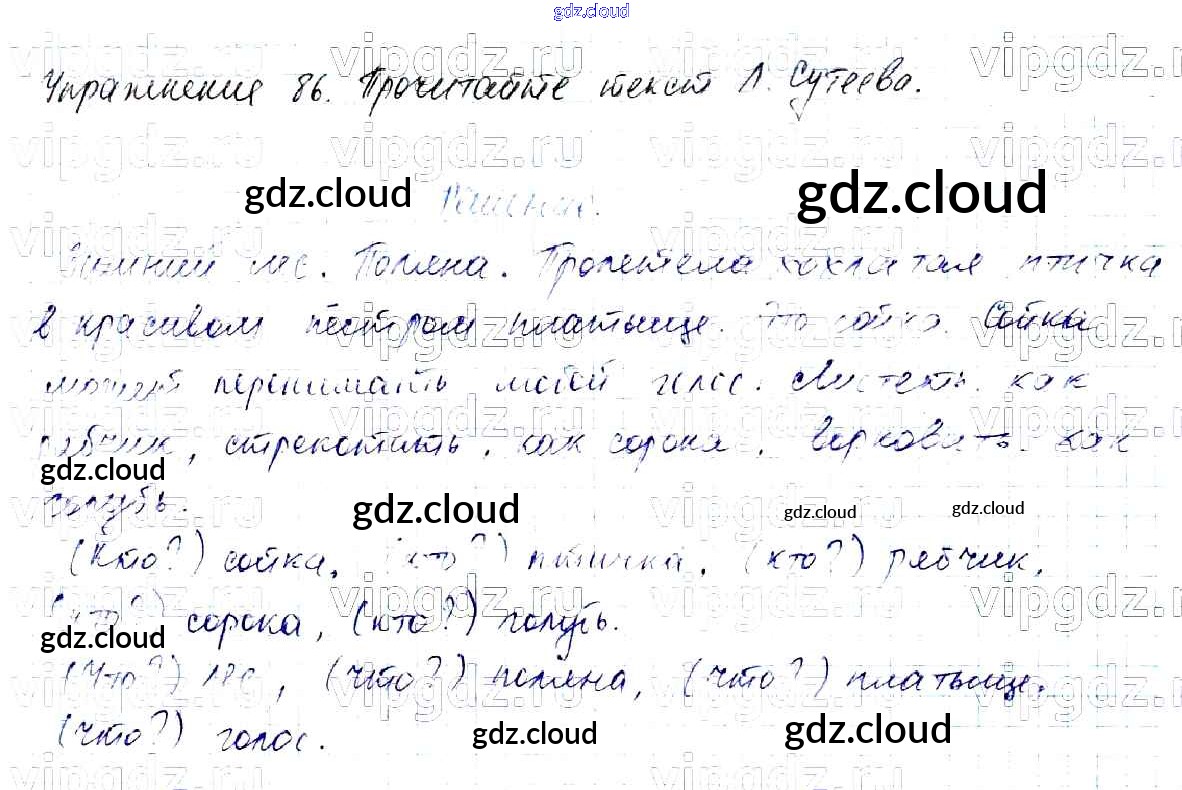 gdz.cloud
Упражнение 86. Прочитайте текст Л. Сутеева.
gdz.cloud Решение. gdz.cloud
Зимний лес. Поляна. Пролетела хохлатая птичка
в красивом пёстром платьице. Это сойка. Сойка
может перенимать любой голос. Свистеть, как
рябчик, стрекотать, как сорока, ворковать как
gdz.cloud
голубь. gdz.cloud gdz.cloud gdz.cloud
(Кто?) сойка, (кто?) птичка, (кто?) рябчик,
(кто?) сорока, (кто?) голубь.
gdz.cloud
(Что?) лес, (что?) поляна, (что?) платьице,
(что?) голос. gdz.cloud gdz.cloud
vipgdz.ru